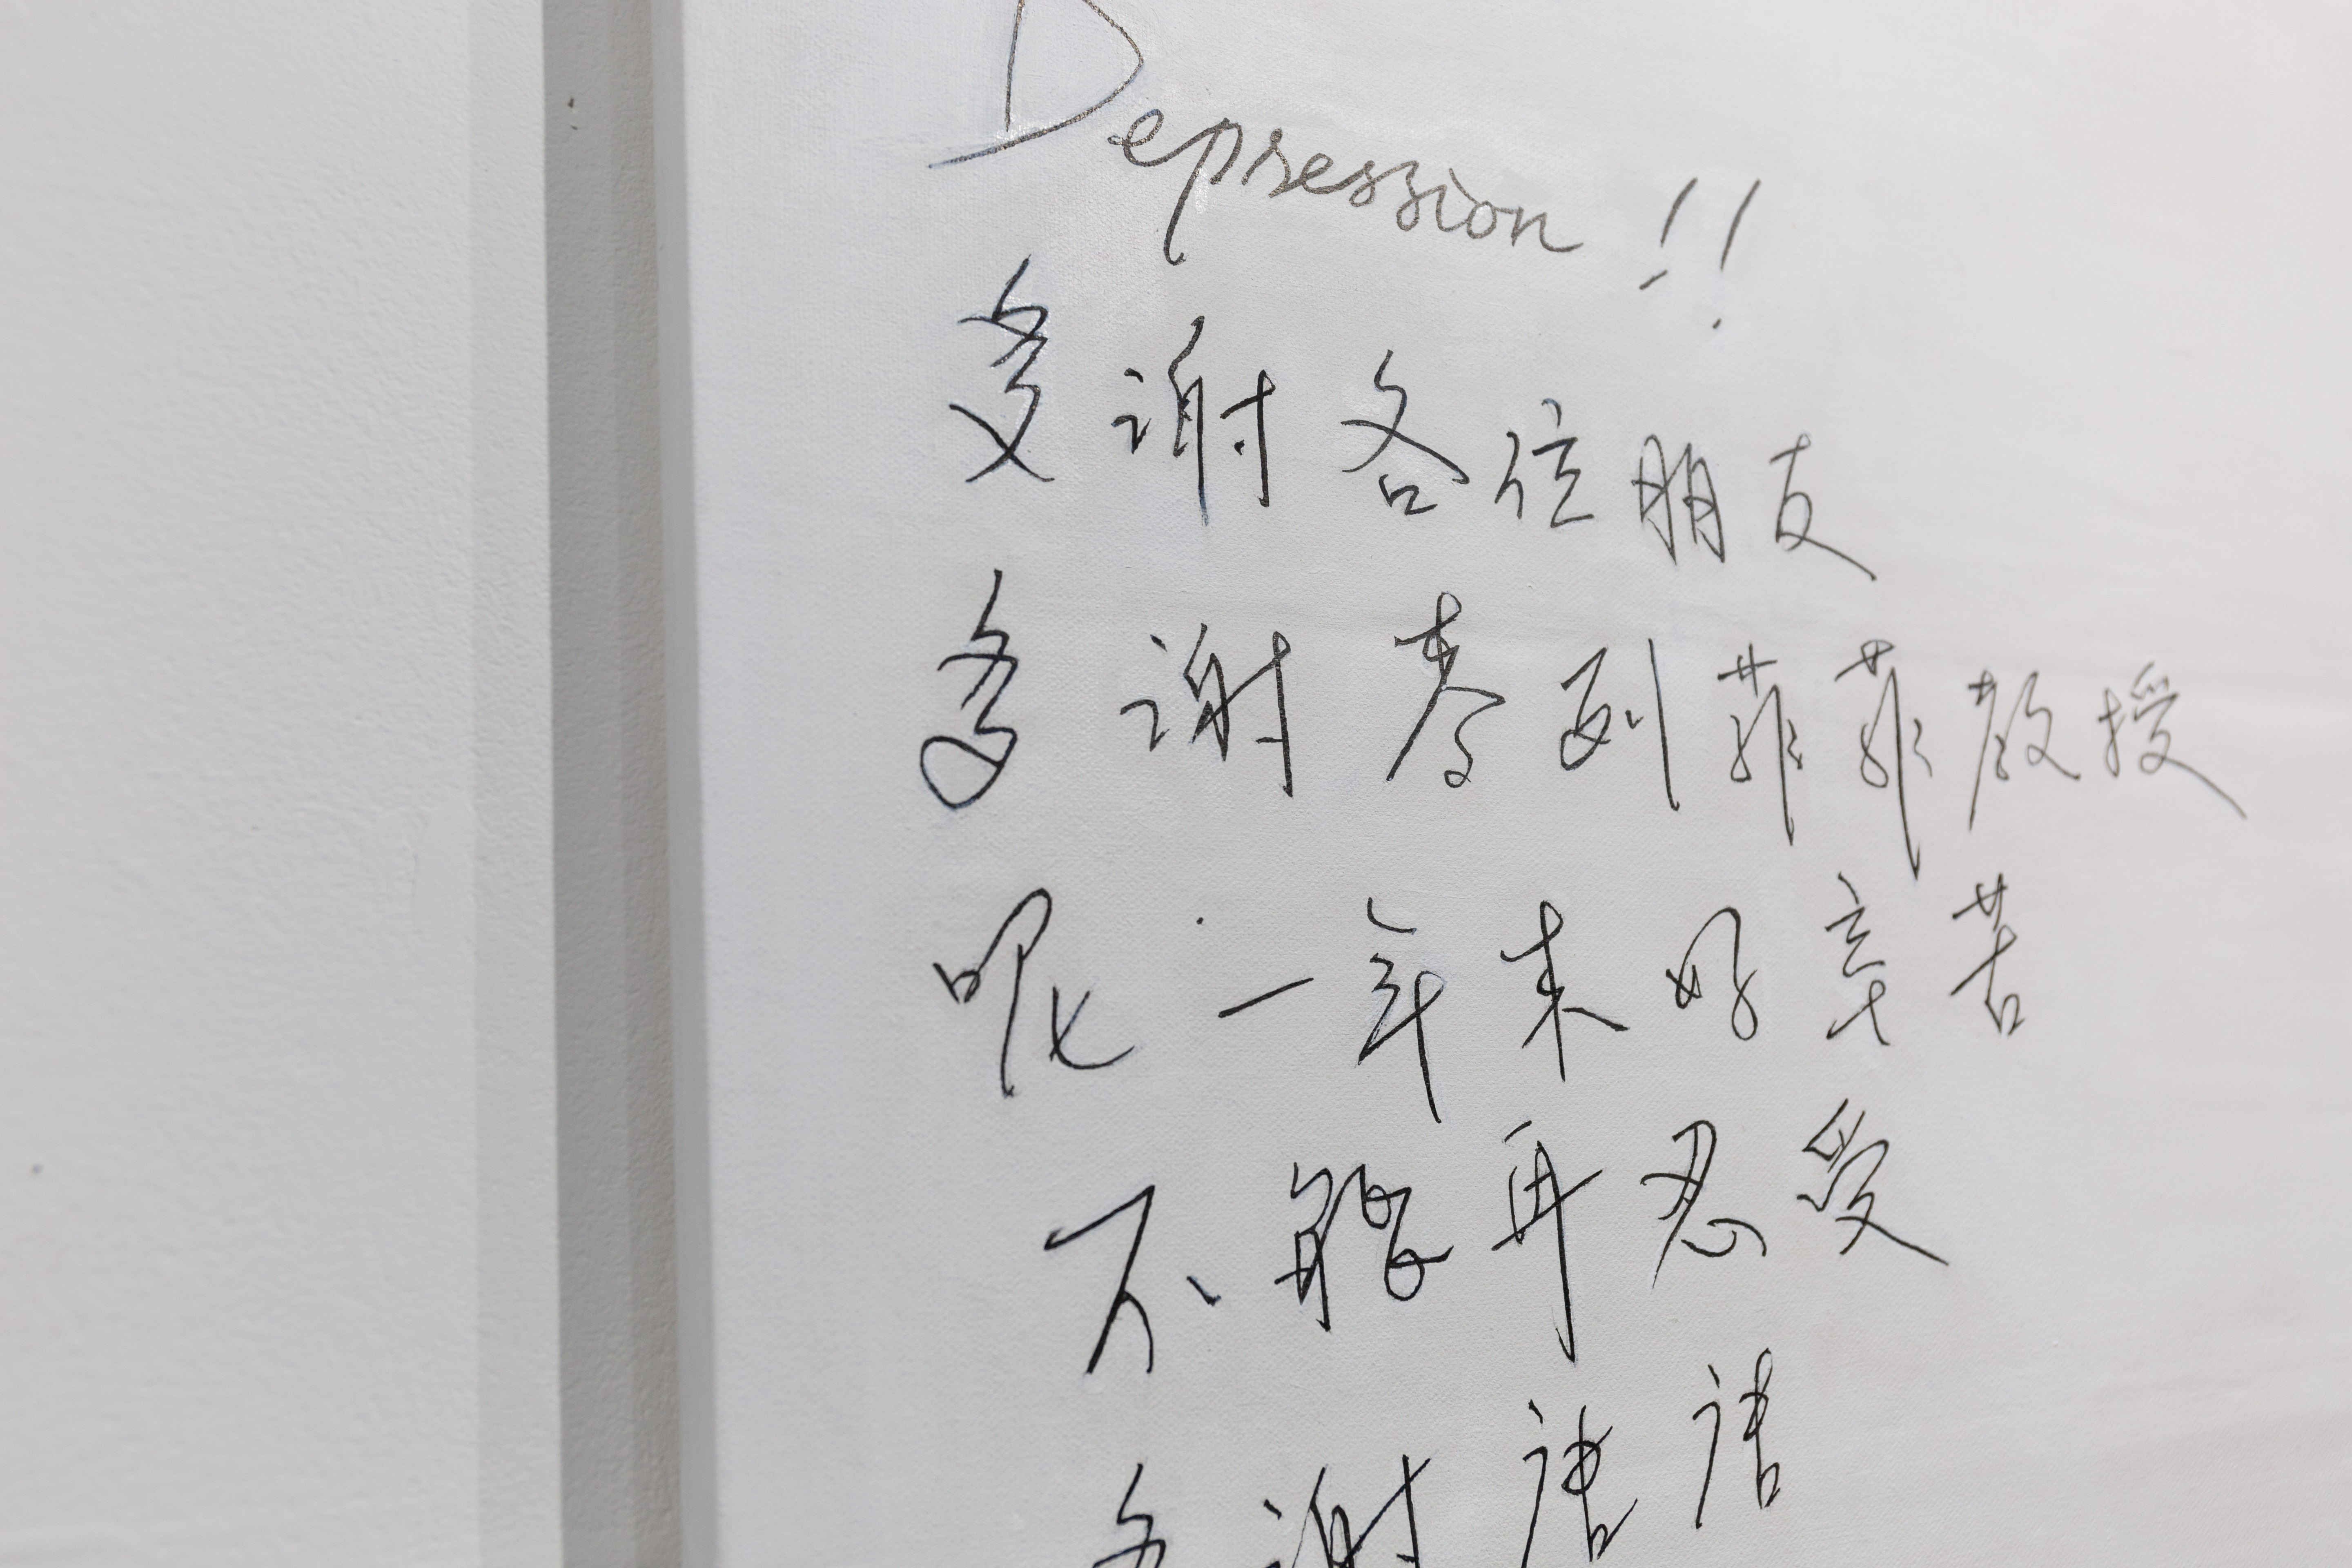 Depression!!
多謝各位朋友
多謝麥列菲菲教授
呢一年來好辛苦
不能再忍受
多謝唐唐